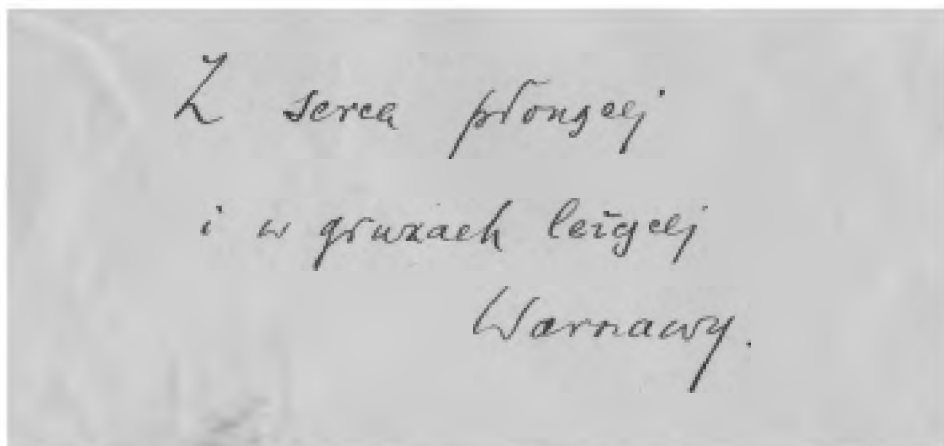 Z serca płonącej
i w gruzach leżącej
Warszawy.